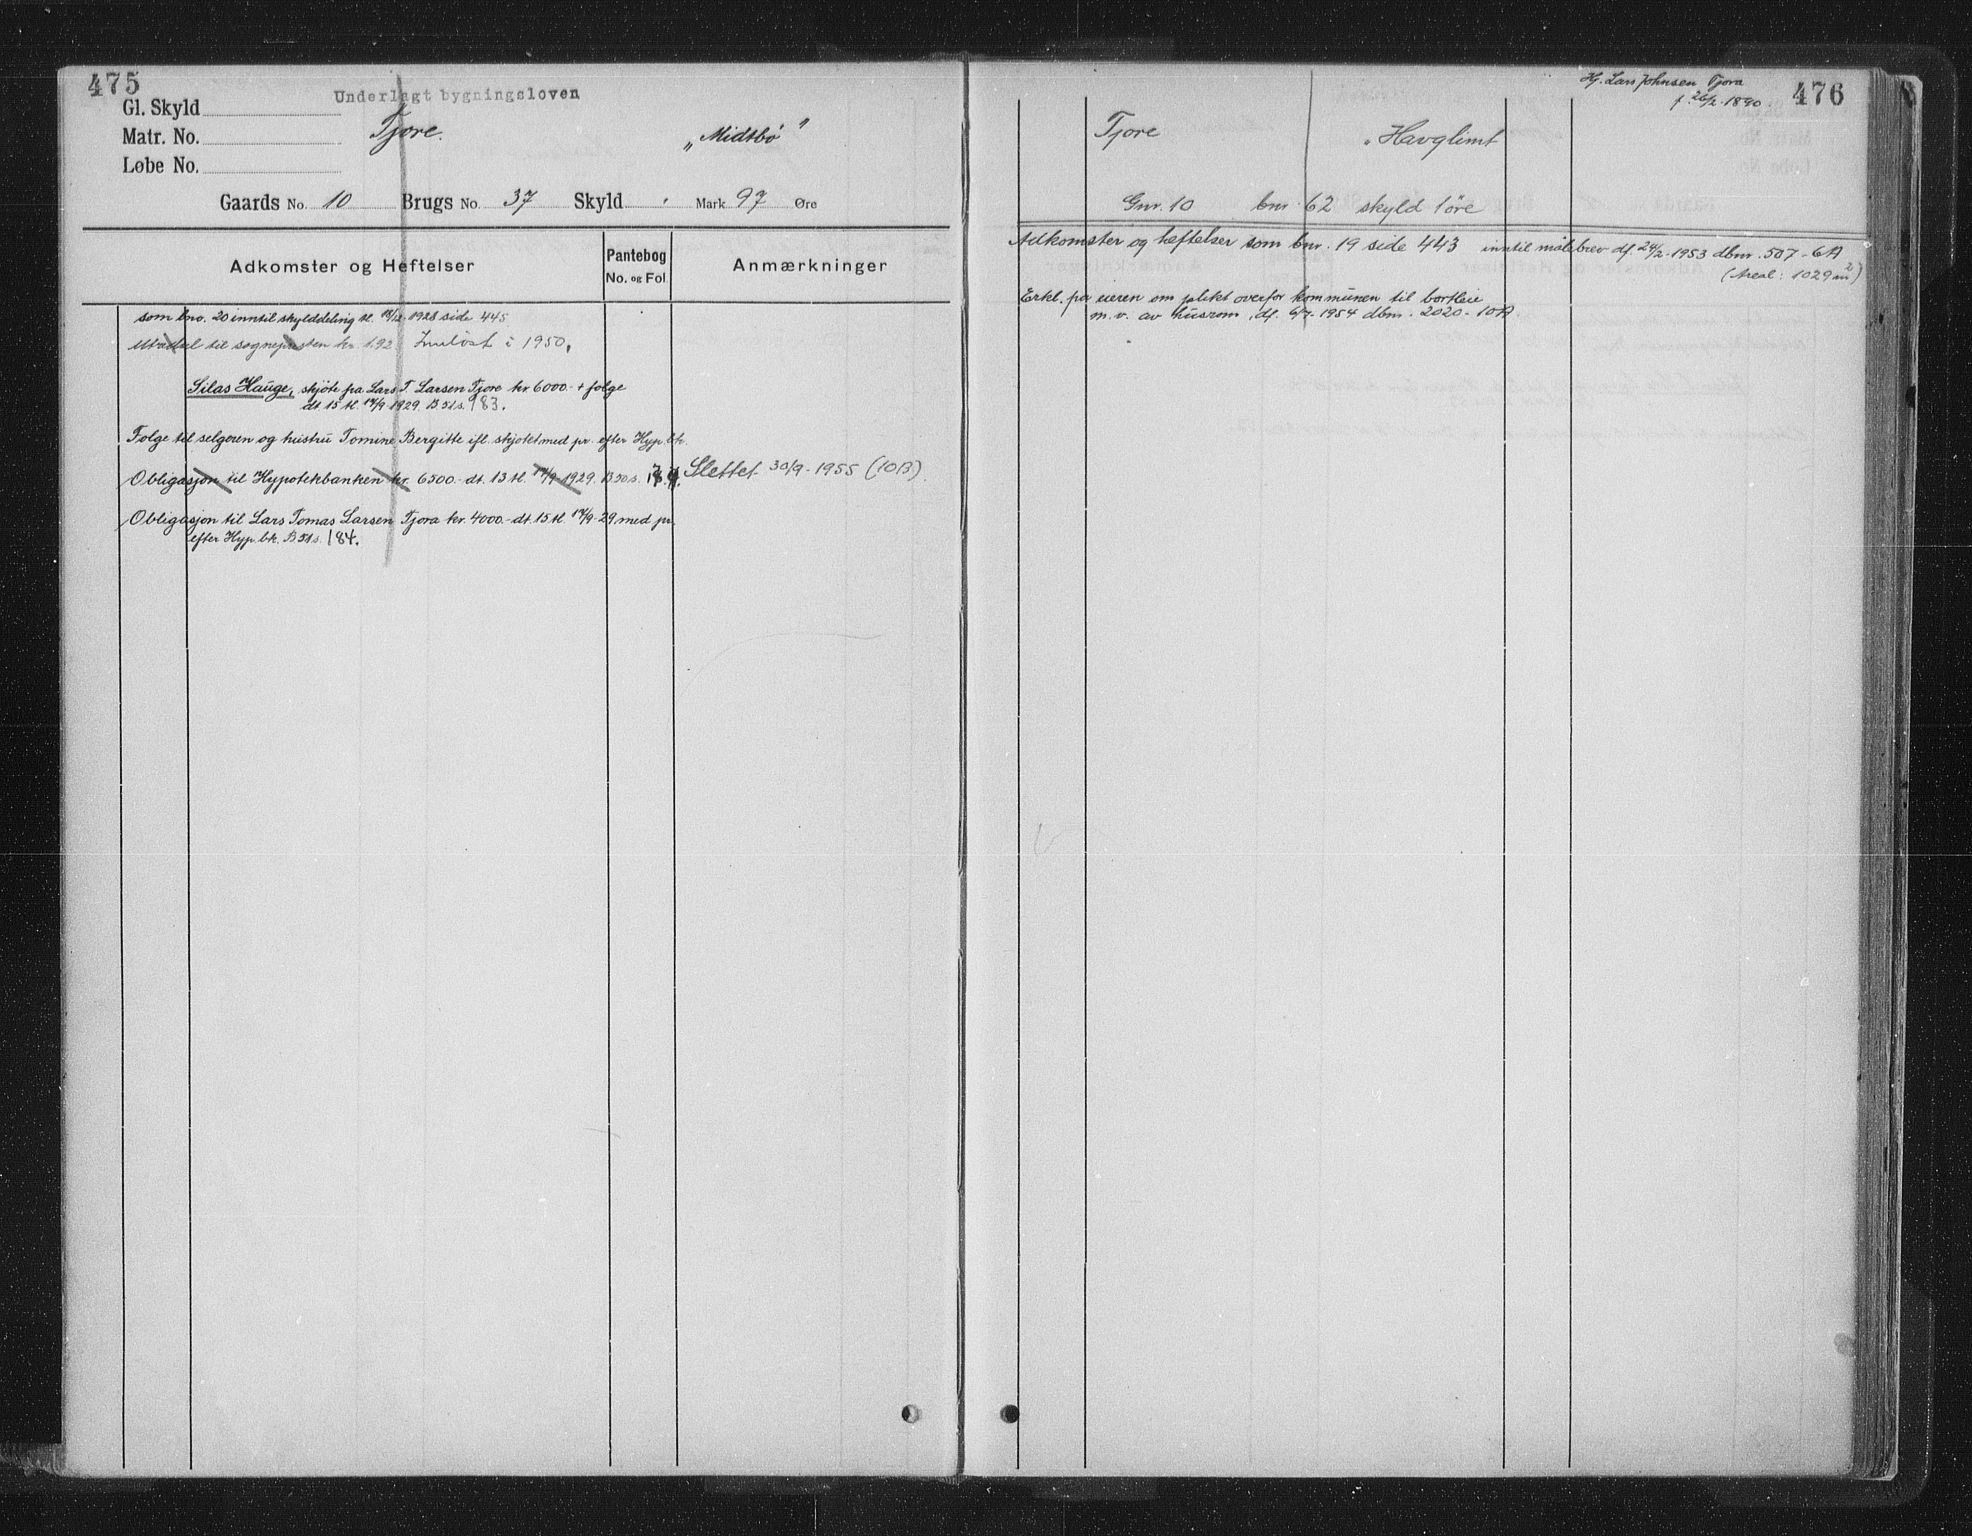 475
Underlagt bygningsloven
Gl. Skyld
Matr. No. Tjore. „Midtbö"
Løbe No.
Gaards No. 10 Brugs No. 37 Skyld Mark 97 Øre
Adkomster og Heftelser
Pantebog
No. og Fol
Anmærkninger
som bno. 20 inntil skylddeling tl. 18/12 1928 side 445
til sognepresten kr. 1.92 Innløst i 1950.
Silas Hauge, skjöte fra Lars T. Larsen Tjore kr 6000.- + folge
dt. 15 tl. 17/9 1929. B 51 s. 183.
Folge til selgeren og hustru Tomine Bergitte ifl. skjötet med pr. efter Hyp.bk.
Obligasjon til Hypotekbanken kr. 6500.- dt. 13 tl. 17/9 1929. B 50 s. Slettet 30/9-1955 (10B).
Obligasjon til Lars Tomas Larsen Tjora kr. 4000.- dt. 15 tl. 17/9-29 med pr.
efter Hyp.bk. B 51 s. 184.
Hj. Lars Johnsen Tjora
f. 26/2-1890.
476
Tjore „Havglimt
Gnr. 10 bnr 62 skyld 1 öre
Adkomster og heftelser som bnr. 19 side 443 inntil målebrev df. 24/2-1953 dbnr. 507-6A
(Areal: 1029 m²)
Erkl. fra eieren om plikt overfor kommunen til bortleie
m.v. av husrom, df. 6/7 1954 dbnr. 2020-10A